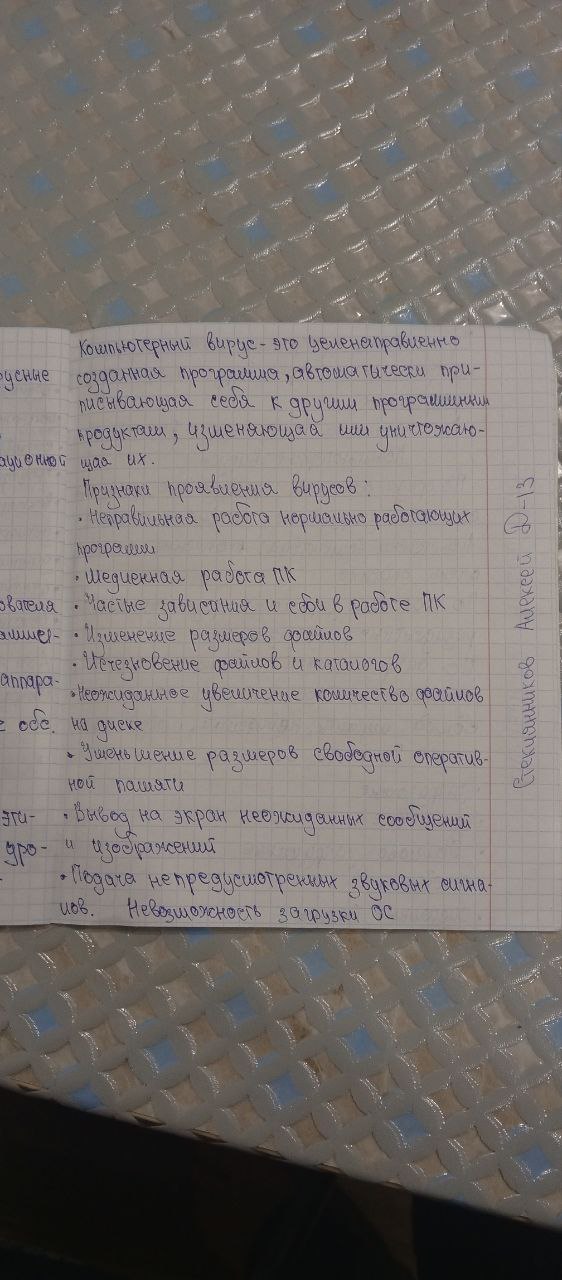 Компьютерный вирус - это целенаправленно
созданная программа, автоматически при-
писывающая себя к другим программным
продуктам, изменяющая или уничтожаю-
щая их.
Признаки проявления вирусов:
• Неправильная работа нормально работающих
программ
• Медленная работа ПК
• Частые зависания и сбои в работе ПК
• Изменение размеров файлов
• Исчезновение файлов и каталогов
• Неожиданное увеличение количество файлов
на диске
• Уменьшение размеров свободной оператив-
ной памяти
• Вывод на экран неожиданных сообщений
и изображений
• Подача непредусмотренных звуковых сигна-
лов. Невозможность загрузки ОС
Стекляшников Алексей Д-13
русные
ационной
ователя
аппара-
обс.
эти-